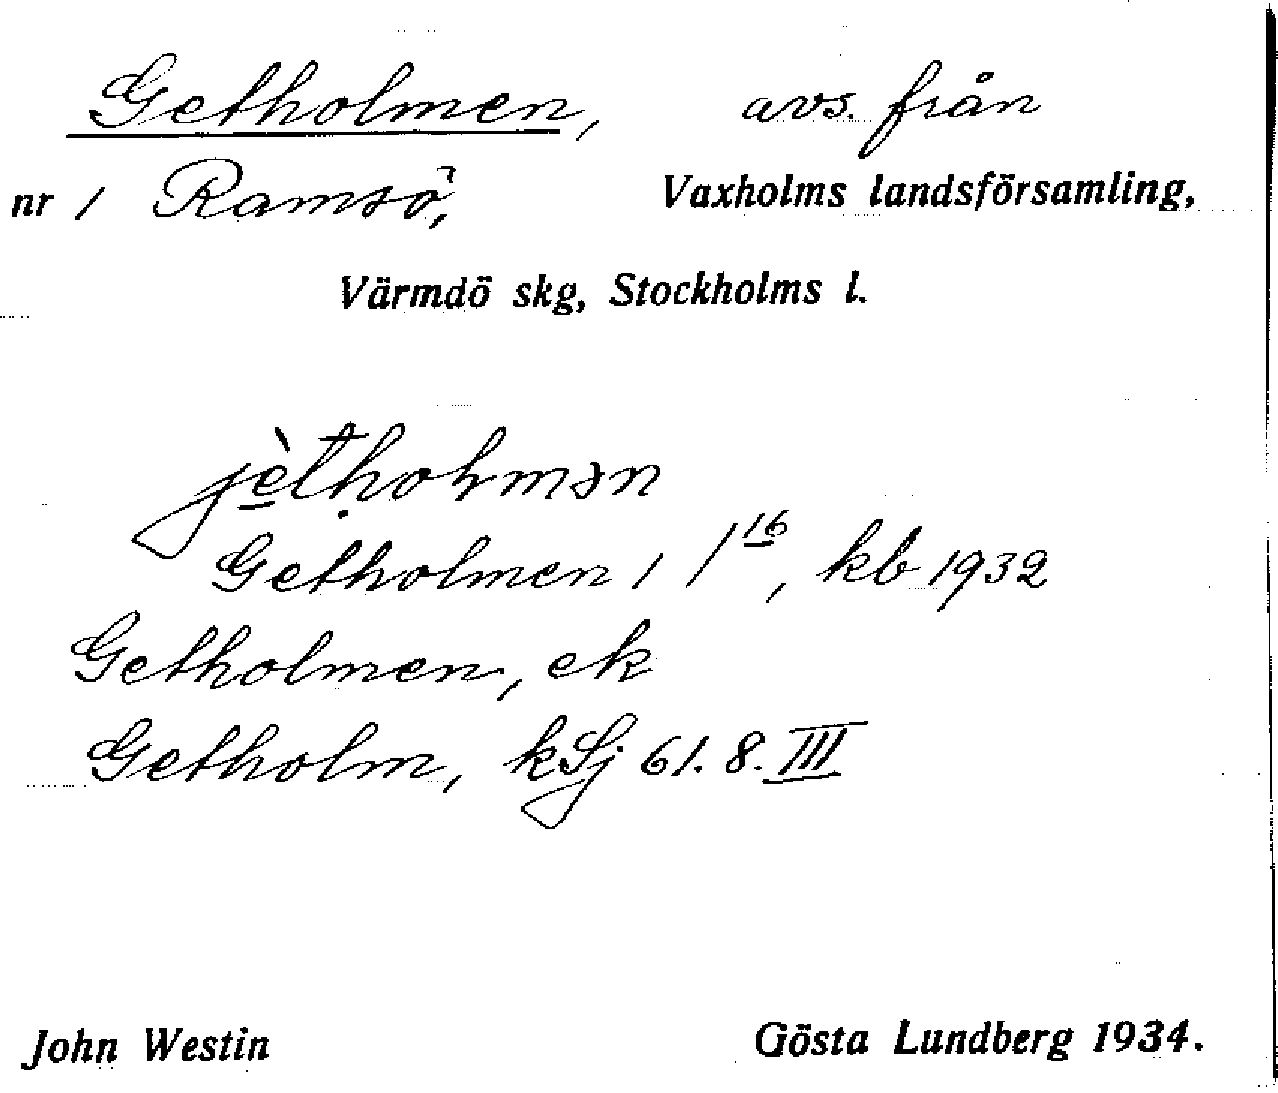 Getholmen, avs. från
nr 1 Ramsö, Vaxholms landsförsamling,
Värmdö skg, Stockholms l.
jèt̀hoḷmən
Getholmen 1 1¹⁶, kb 1932
Getholmen, ek
Getholm, kSj 61. 8. III
John Westin Gösta Lundberg 1934.